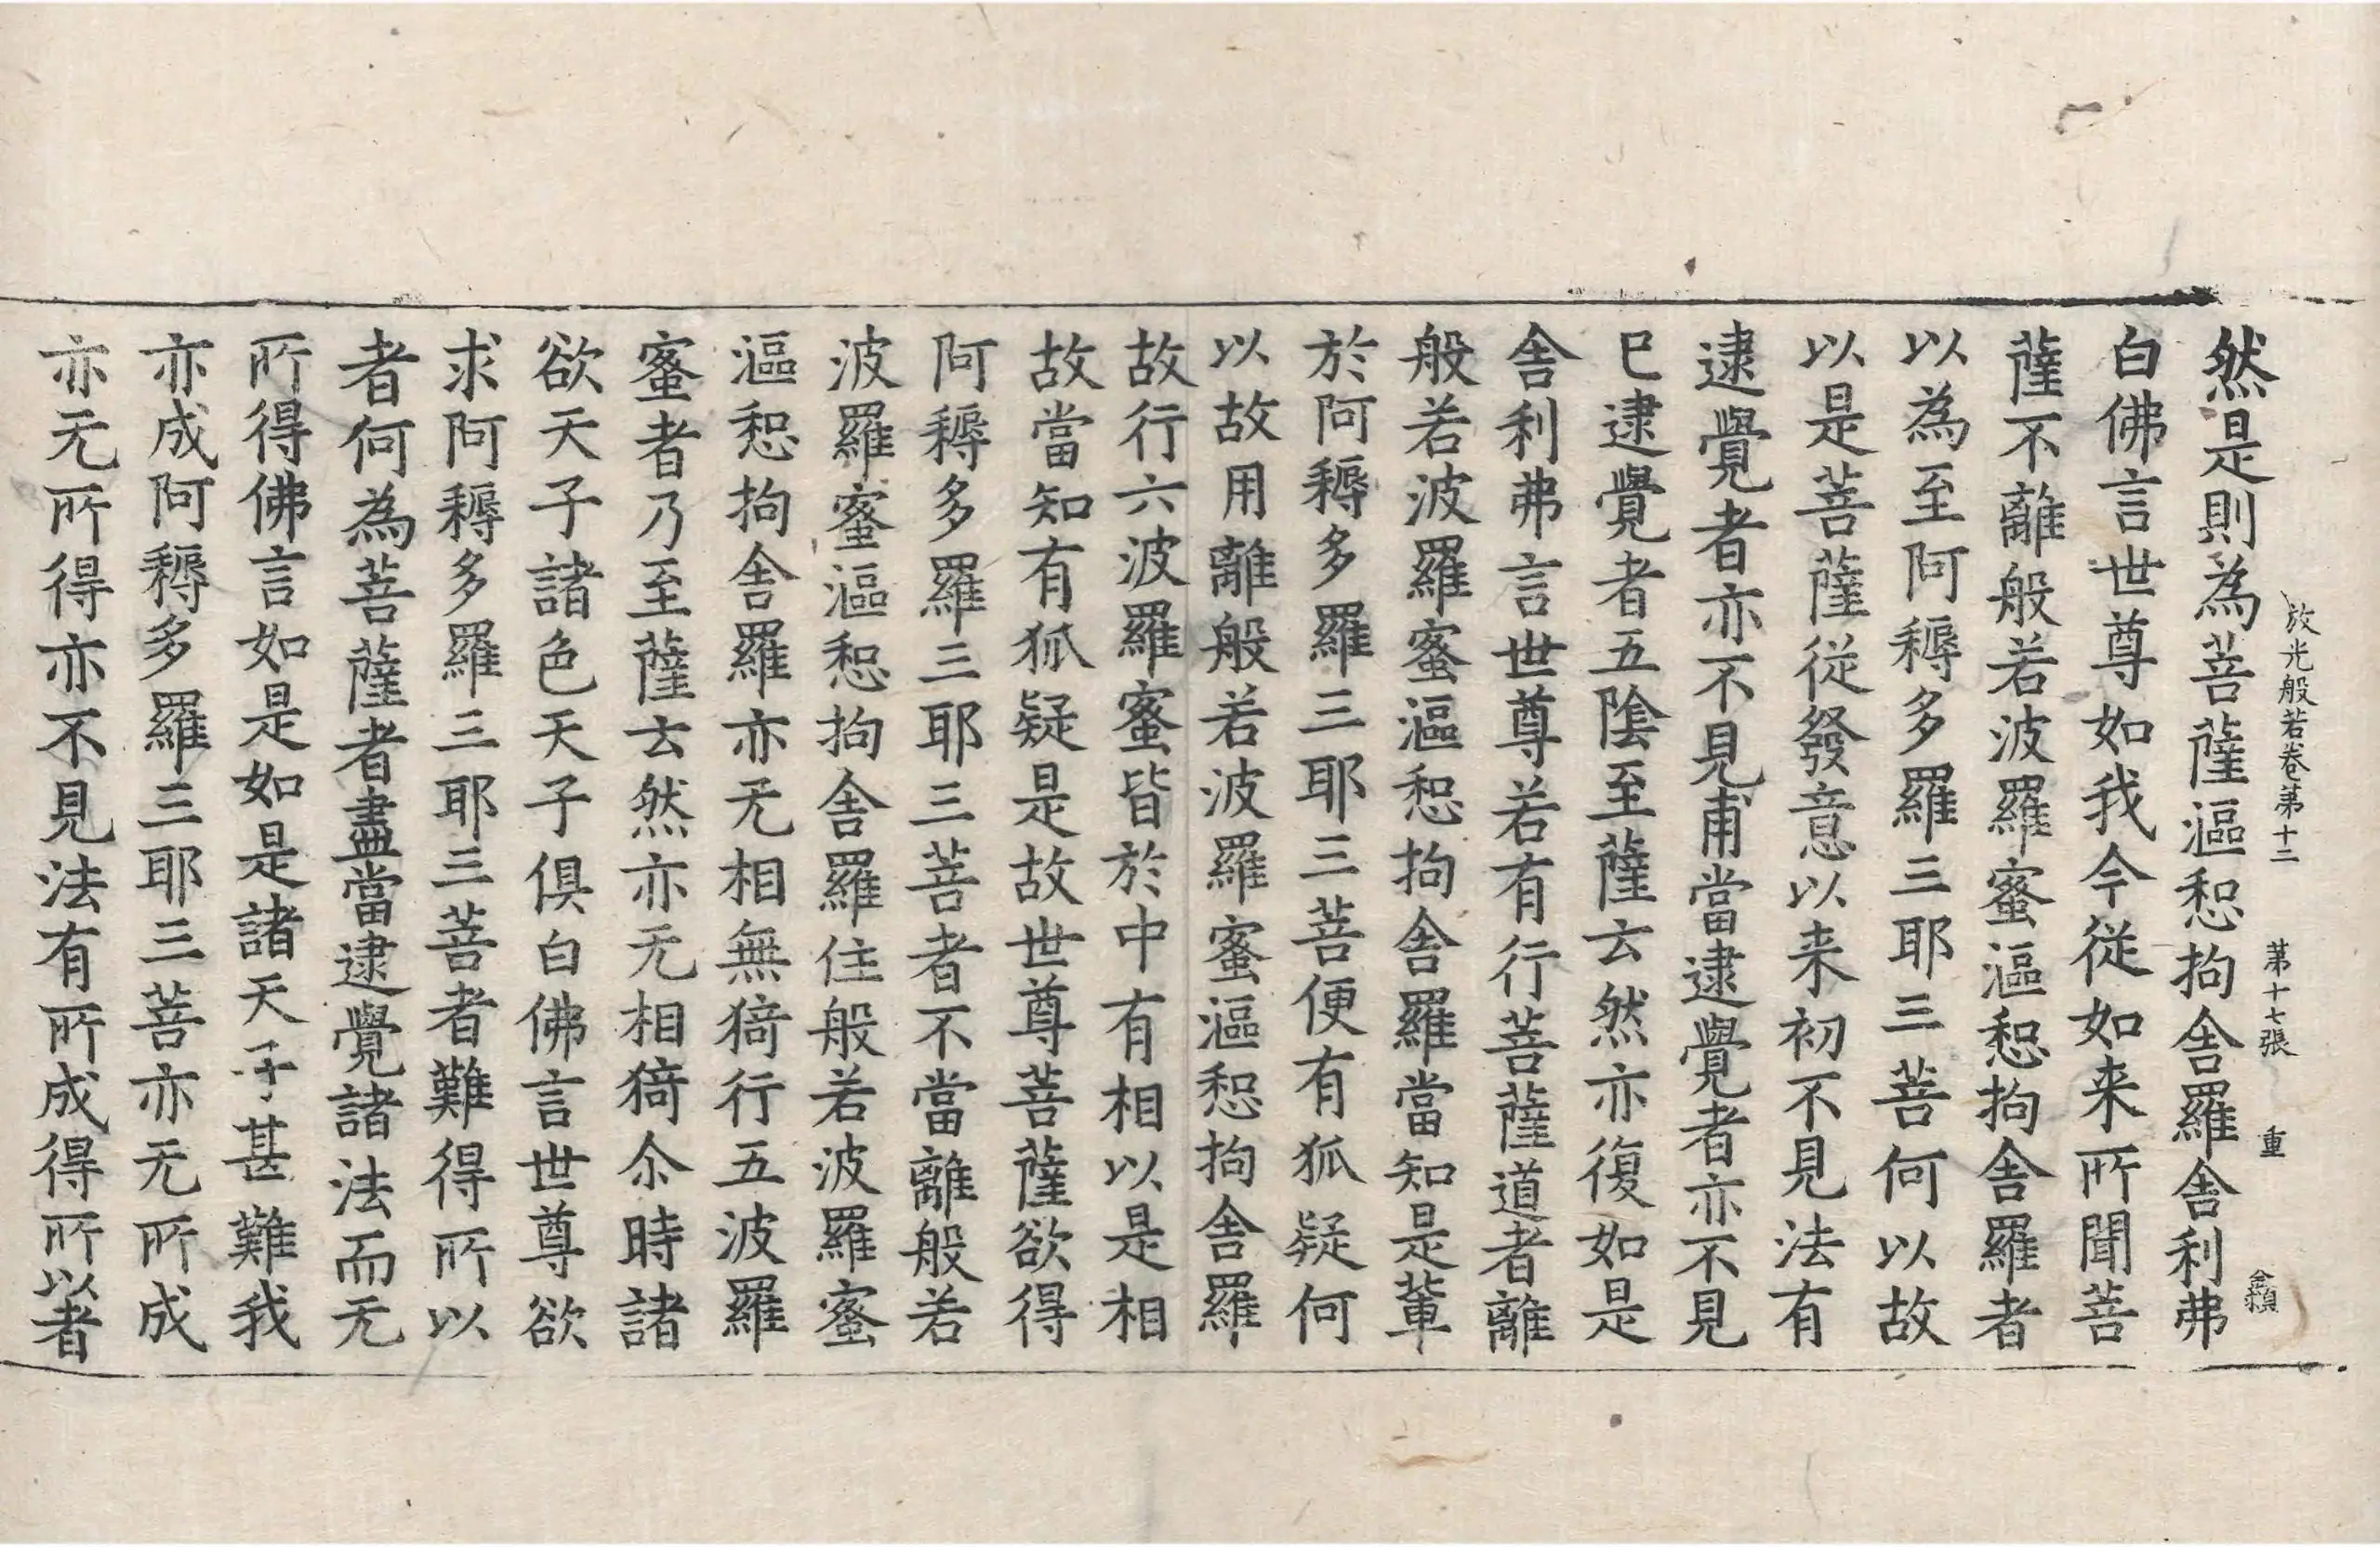 放光般若卷第十二 第十七張 重
然是則為菩薩漚惒拘舍羅舍利弗
白佛言世尊如我今従如来所聞菩
薩不離般若波羅蜜漚惒拘舍羅者
以為至阿耨多羅三耶三菩何以故
以是菩薩従發意以来初不見法有
逮覺者亦不見甫當逮覺者亦不見
已逮覺者五陰至薩云然亦復如是
舍利弗言世尊若有行菩薩道者離
般若波羅蜜漚惒拘舍羅當知是輩
於阿耨多羅三耶三菩便有狐疑何
以故用離般若波羅蜜漚惒拘舍羅
故行六波羅蜜皆於中有相以是相
故當知有狐疑是故世尊菩薩欲得
阿耨多羅三耶三菩者不當離般若
波羅蜜漚惒拘舍羅住般若波羅蜜
漚惒拘舍羅亦无相無猗行五波羅
蜜者乃至薩云然亦无相猗尒時諸
欲天子諸色天子俱白佛言世尊欲
求阿耨多羅三耶三菩者難得所以
者何為菩薩者盡當逮覺諸法而无
所得佛言如是如是諸天子甚難我
亦成阿耨多羅三耶三菩亦无所成
亦无所得亦不見法有所成得所以者